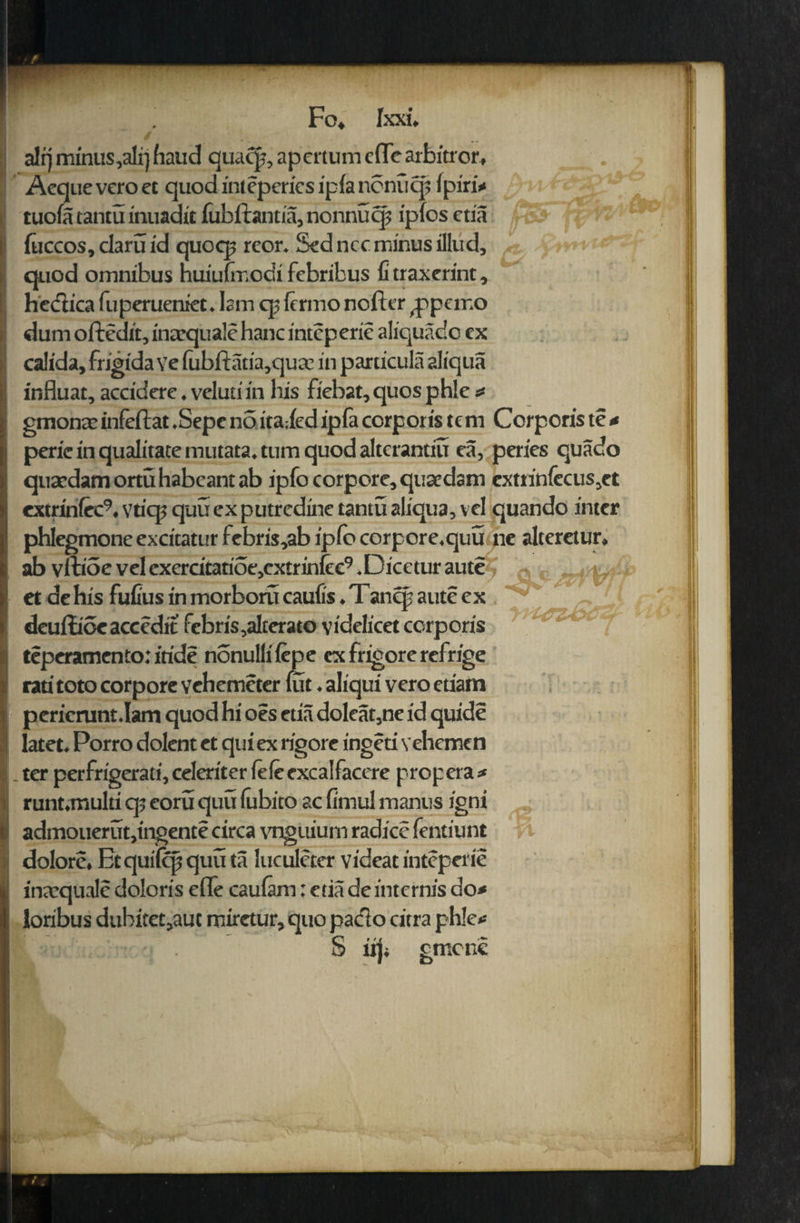 Fo. lxxi.
alij minus, alij haud quaꝙ, apertum eſſe arbitror.
Aeque vero et quod intēperies ipſa nōnūꝙ ſpiri⸗
tuoſā tantū inuadit ſubſtantiā, nonnūꝙ ipſos etiā
ſuccos, clarū id quoqꝫ reor. Sed nec minus illud,
quod omnibus huiuſmodi febribus ſi traxerint,
hectica ſuperueniet. Iam qꝫ ſermo noſter ꝓpemo
dum oſtēdit, inæqualē hanc intēperiē aliquādo ex
calida, frigida ve ſubſtātia, quæ in particulā aliquā
influat, accidere. veluti in his fiebat, quos phle⸗
gmonæ infeſtat. Sepe nō ita: ſed ipſa corporis tem
perie in qualitate mutata. tum quod alterantiū eā,
quædam ortū habeant ab ipſo corpore, quædam extrinſecus, et
extrinſecꝰ. vtiqꝫ quū ex putredine tantū aliqua, vel quando inter
phlegmone excitatur febris, ab ipſo corpore. quū ne alteretur.
ab vſtiōe vel exercitatiōe, extrinſecꝰ. Dicetur autē
et de his fuſius in morborū cauſis. Tanꝙ autē ex
deuſtiōe accēdit febris, alterato videlicet corporis
tēperamento: itidē nōnulli ſepe ex frigore refrige
rati toto corpore vehemēter ſūt. aliqui vero etiam
perierunt. Iam quod hi oēs etiā doleāt, ne id quidē
latet. Porro dolent et qui ex rigore ingēti vehemen
ter perfrigerati, celeriter ſeſe excalfacere propera⸗
runt. multi qꝫ eorū quū ſubito ac ſimul manus igni
admouerūt, ingentē circa vnguium radicē ſentiunt
dolorē. Et quiſꝙ quū tā luculēter videat intēperiē
inæqualē doloris eſſe cauſam: etiā de internis do⸗
loribus dubitet, aut miretur, quo pacto citra phle⸗
S iij. gmonē
Corporis tē⸗
peries quādo